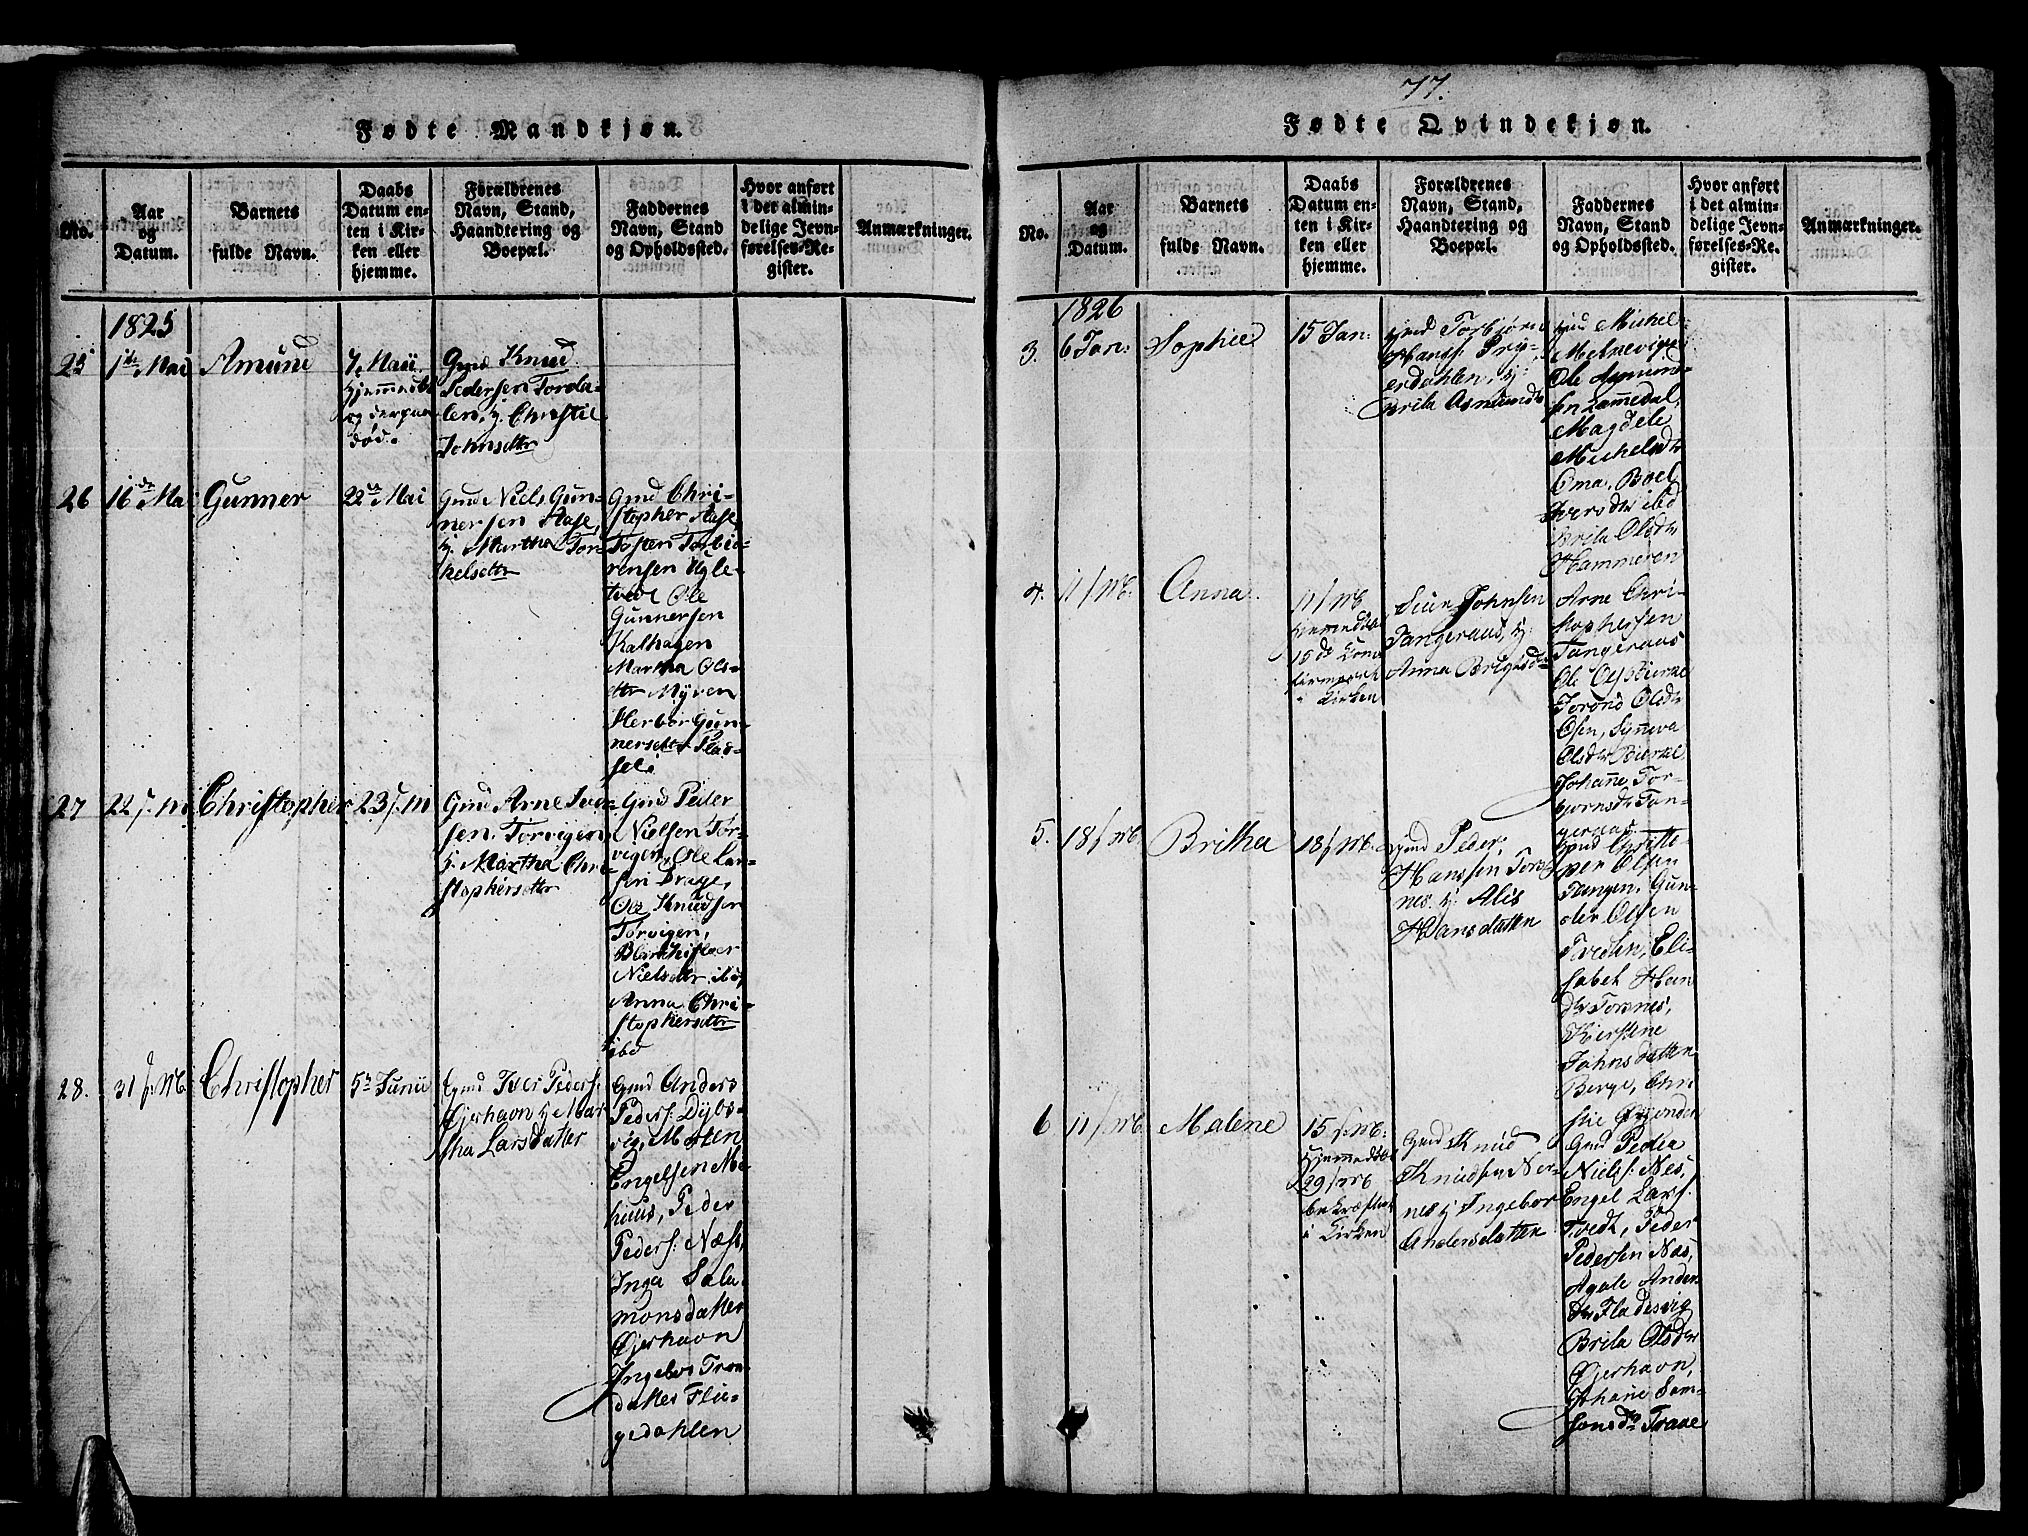 77.
Fødte Mandkjøn.
No.
Aar
og
Datum.
Barnets
fulde Navn.
Daabs
Datum en-
ten i Kir-
ken eller
hjemme.
Forældrenes
Navn, Stand,
Haandtering og
Boepæl.
Faddernes
Navn, Stand
og Opholdssted.
Hvor anført
i det almin-
delige Jevn-
førelses-Re-
gister.
Anmærkninger.
1825
25
1ste Mai
Amund
7 Maii
hjemmedbt
og derpaa
død.
Gmd Knud
Pedersen Torda-
len, h. Christie
Johnsdtr
26
16de Mai
Gunner
22de Mai
Gmd Niels Gun-
nersen Aase,
h. Martha Tor-
kelsdtr
Gmd Chri-
stopher Aase,
Tosten Torbiø-
rensen Ugle-
tvedt Ole
Gunnersen
Kalhagen
Martha Ols-
dtr Myren
Herbor Gun-
nersdtr
27
22 f. M
Christopher
23 f. M
Gmd Arne Iver-
sen Torvigen
h. Martha Chri-
stophersdtr
Gmd Peder
Nielsen Tor-
vigen, Ole Lar-
sen Drage,
Ole Knudsen
Torvigen,
Nielsdtr ibd
Anna Chri-
stophersdtr
ibd
28.
31 f M.
Christopher
5te Junii
Gmd Iver Peders.
Øjerhavn h. Mar-
tha Larsdatter
Gmd Anders
Peders. Dybs-
vig, Morten
Engelsen Mø-
huus, Peder
Peders. Næss,
Inga Salu-
monsdatter
Øjerhavn
Ingebor Tron-
datter Flue-
gedahlen
Fødte Qvindekjøn.
No.
Aar
og
Datum.
Barnets
fulde Navn.
Daabs
Datum en-
ten i Kir-
ken eller
hjemme.
Forældrenes
Navn, Stand,
Haandtering og
Boepæl.
Faddernes
Navn, Stand
og Opholdssted.
Hvor anført
i det almin-
delige Jevn-
førelses-Re-
gister.
Anmærkninger.
1826
3.
6 Jan:
Sophie
15 Jan:
gmd Torbjørn
Hanss. Pry-
erdahlen, h:
Brita Asmundsdr
gmd Michel
Melkevigen
Ole Asmun-
sen Lammedal,
Magdele
Michelsdr
Oma, Boel
Iversdtr ibd
Brita Olsdr
Hammeren
4.
11 f M.
Anna
11 f M
hjemmedbt
15de
i Kirken
Siur Johnsen
Tangeraas, h:
Anna Brigtsdr
Arne Chri-
stophersen
Tangeraas
Ole Ols Bierke
Jorond Olsdr
Osen, Synneva
Olsdr Bierke
Johanne Tor-
bjørnsdr Tan-
geraas
5.
18 f M.
Britha
18 f M.
gmd Peder
Hanssen Tors-
nes. h: Alis
Hansdatter
gmd Christo-
per Olsen
Tangen, Gun-
der Olsen
Tveden, Eli-
sabet Han
dr Torsnes,
Kierstine
Johnsdatter
Berge, Chri
stie Øyender
6
11 f M
Malene
15 f M.
hjemmedbt
29 f M
bekræftet
i Kirken
Gmd Knud
Knudsen Ner-
nes h Ingebor
Andersdatter
Gmd Peder
Niels: Nes,
Engel Lars:
Tvedt, Peder
Pedersen Nes,
Agate Ander
dtr Fladesvig
Brita Olsdr
Øjerhavn,
Johane Sam-
sonsdr Traae